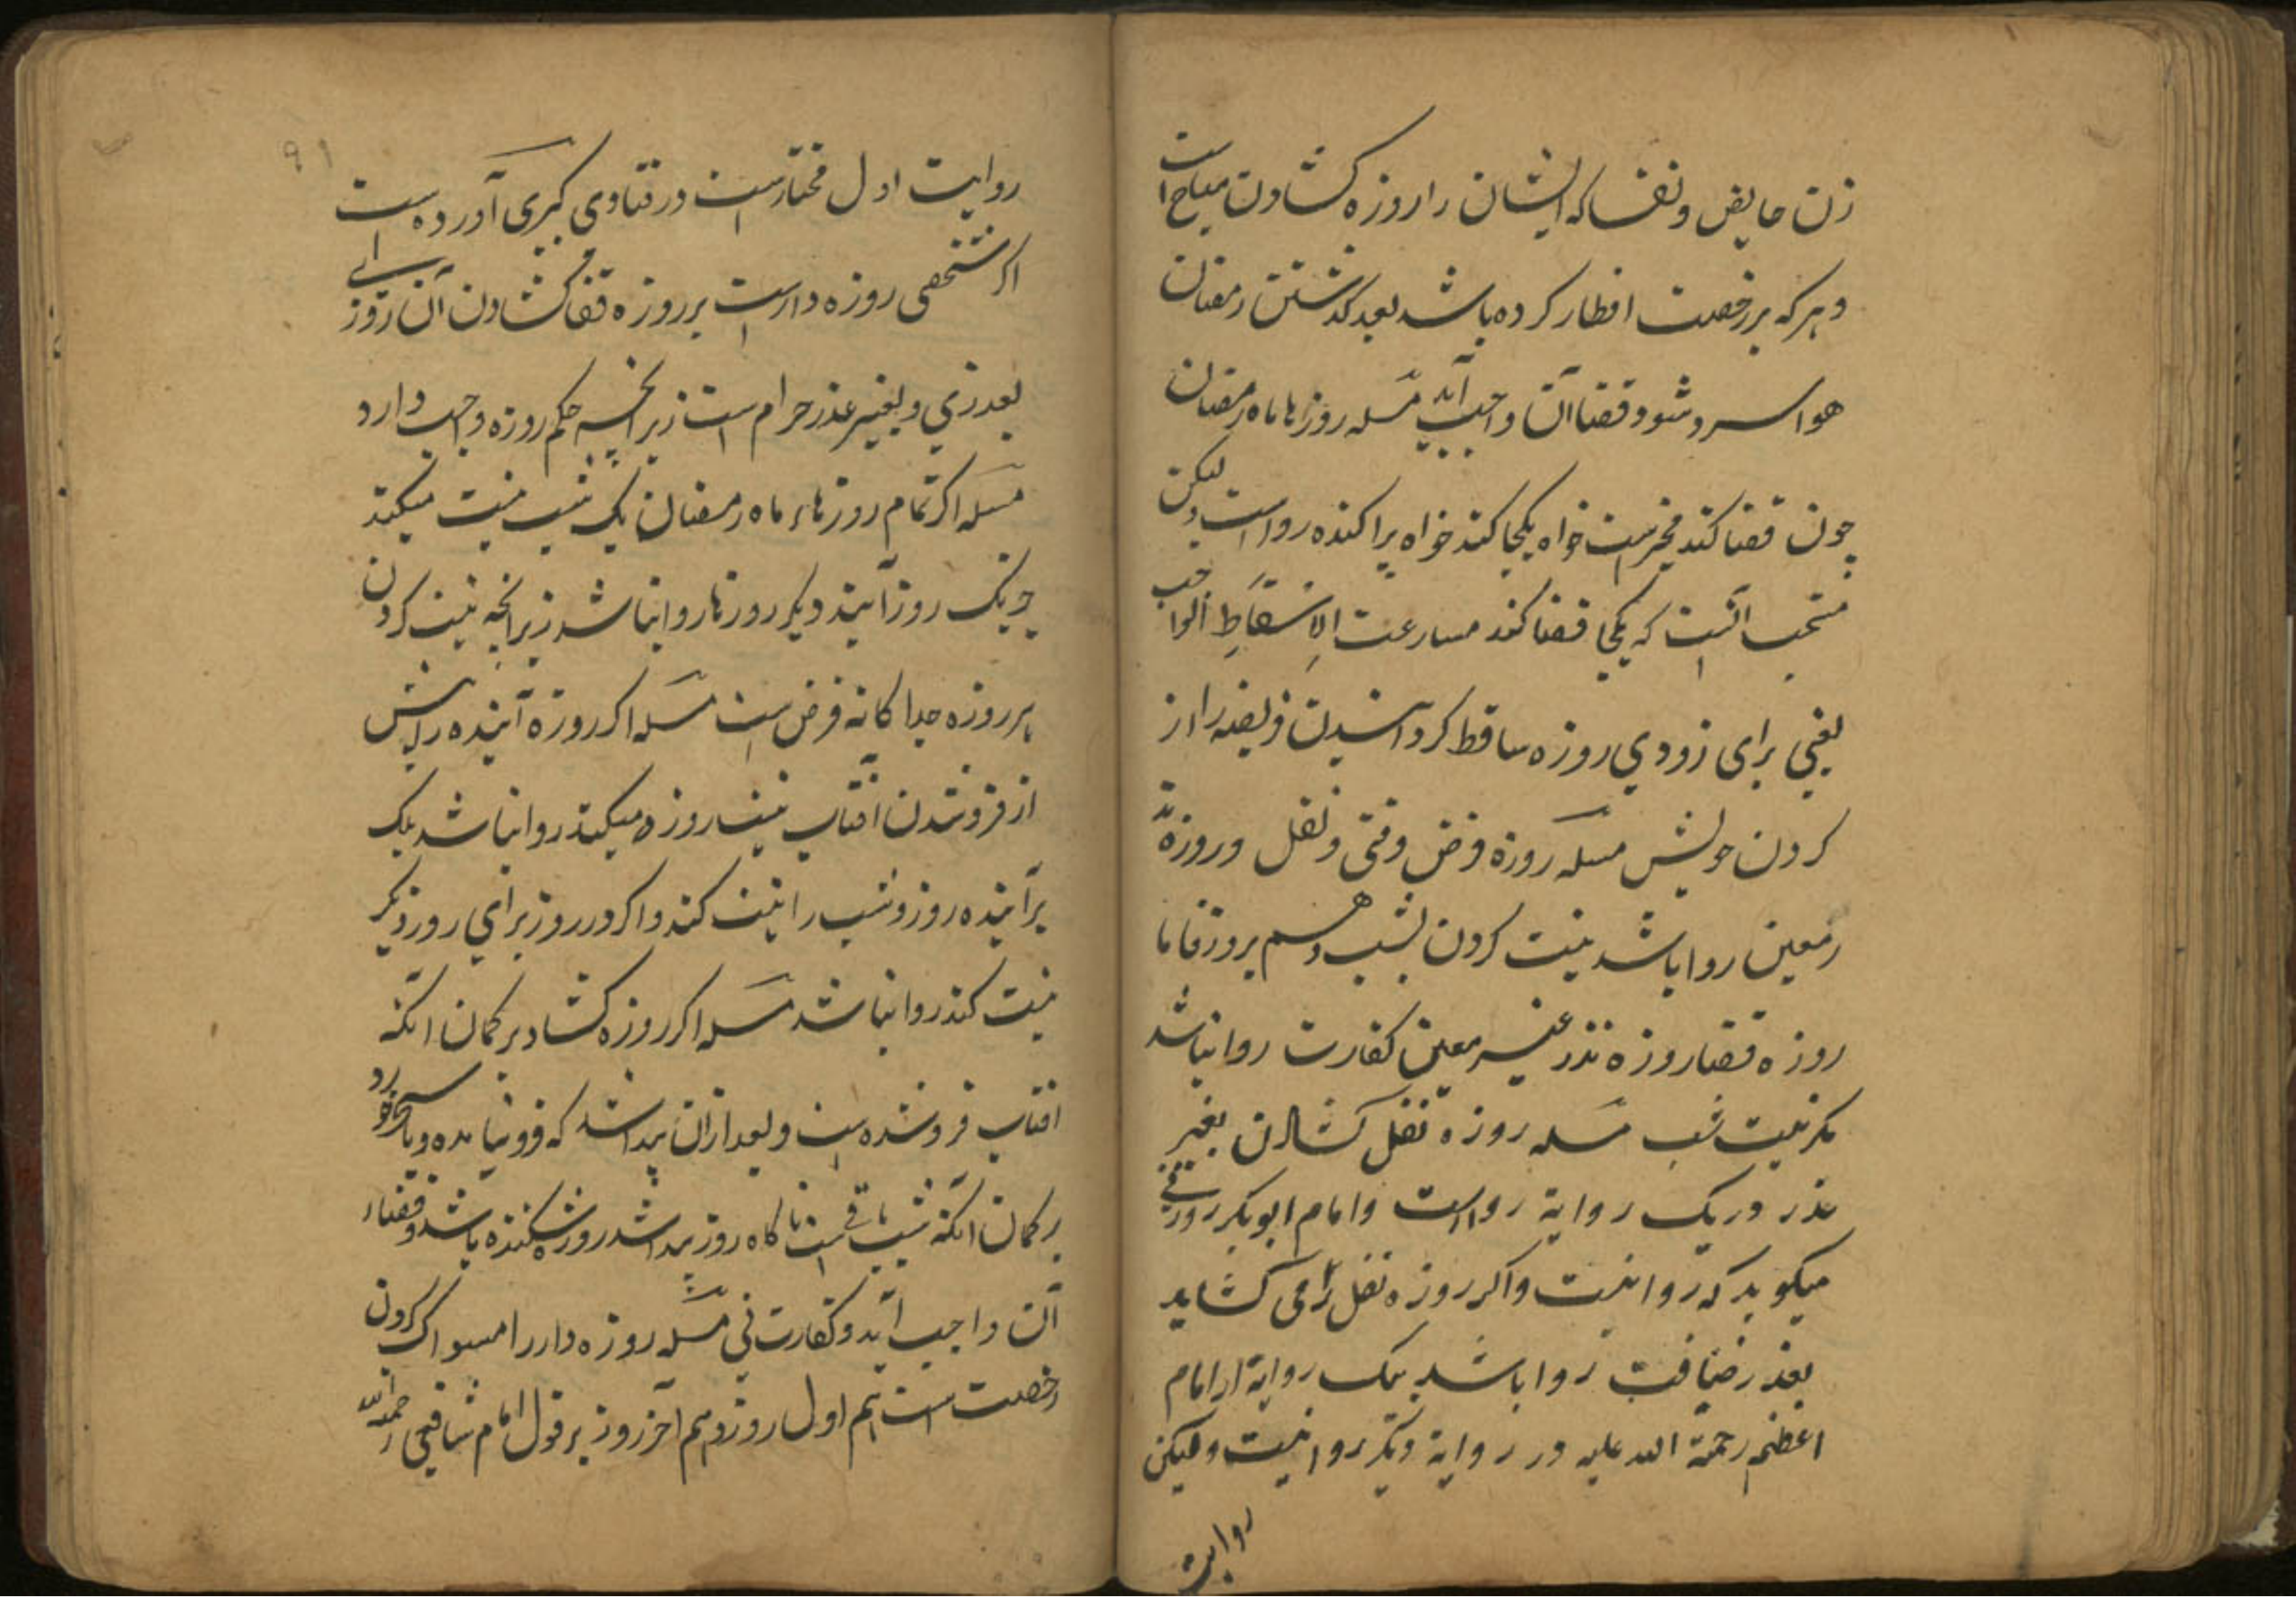 زن حایض و نفسا که ایشان را روزه کشادن مباح است
و هر که بر رخصت افطار کرده باشد بعد کذشتن رمضان
هوا سرد شود و قضا آن واجب آید مسله روزها ماه رمضان
چون قضا کند مخیر است خواه یکجا کند خواه پراکنده رواست ولیکن
مستحب آنست که یکجا قضا کند مسارعت الاِسْقَاطِ الواجب
یعنی برای زودی روزه ساقط کردانیدن فریضه را از
کردن خویش مسله روزه فرض وقتی و نفل و روزه
معین روا باشد نیت کردن بشب و هم بروز فاما
روزه قضا روزه نذر غیر معین کفارت روا نباشد
مکر نیت شب مسله روزه نفل کشادن بغیر
عذر در یک روایة رواست و امام ابوبکر
میکوید که روا نیست و اکر روزه نفل را می کشاید
بعذر ضیافت روا باشد بیک روایة از امام
اعظم رحمة الله علیه و در روایة دیکر روا نیست و لیکن
روایت
۹۱
روایت اول مختارست در فتاوی کبری آورده است
اکر شخصی روزه دارست بر روزه قضا کشادن آن روز
بعذری و بغیر عذر حرام است زیرانچه حکم روزه واجب دارد
مسله اکر تمام روزهاء ماه رمضان یک شب نیت میکند
جز یک روز آینده دیکر روزها روا نباشد زیرانچه نیت کردن
هر روزه جداکانه فرض است مسله اکر روزه آینده را پیش
از فرو شدن آفتاب نیت روزه میکند روا نباشد بلک
برآینده روز و شب را نیت کند و اکر در روز برای روز دیکر
نیت کند روا نباشد مسله اکر روزه کشاد بر کمان آنکه
آفتاب فرو شده است و بعد ازان پیدا شد که فرو نیامده و یا سحر خورد
بر کمان آنکه شب باقی است ناکاه روز پیدا شد روزه شکننده باشد و قضاء
آن واجب آید و کفارت نی مسله روزه دار را مسواک کردن
رخصت است هم اول روز و هم آخر روز بر قول امام شافعی رحمه الله